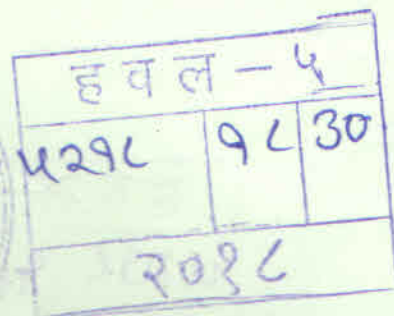 हवल - ५
५२१८ १८ 30
२०१८